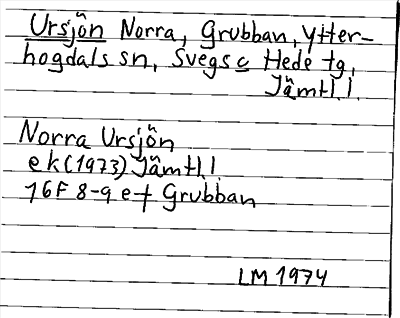 Ursjön Norra, Grubban, Ytter-
hogdals sn, Svegs o Hede tg,
Jämtl. l.
Norra Ursjön
ek (1973) Jämtl. l.
16F 8-9 e-f Grubban
LM 1974